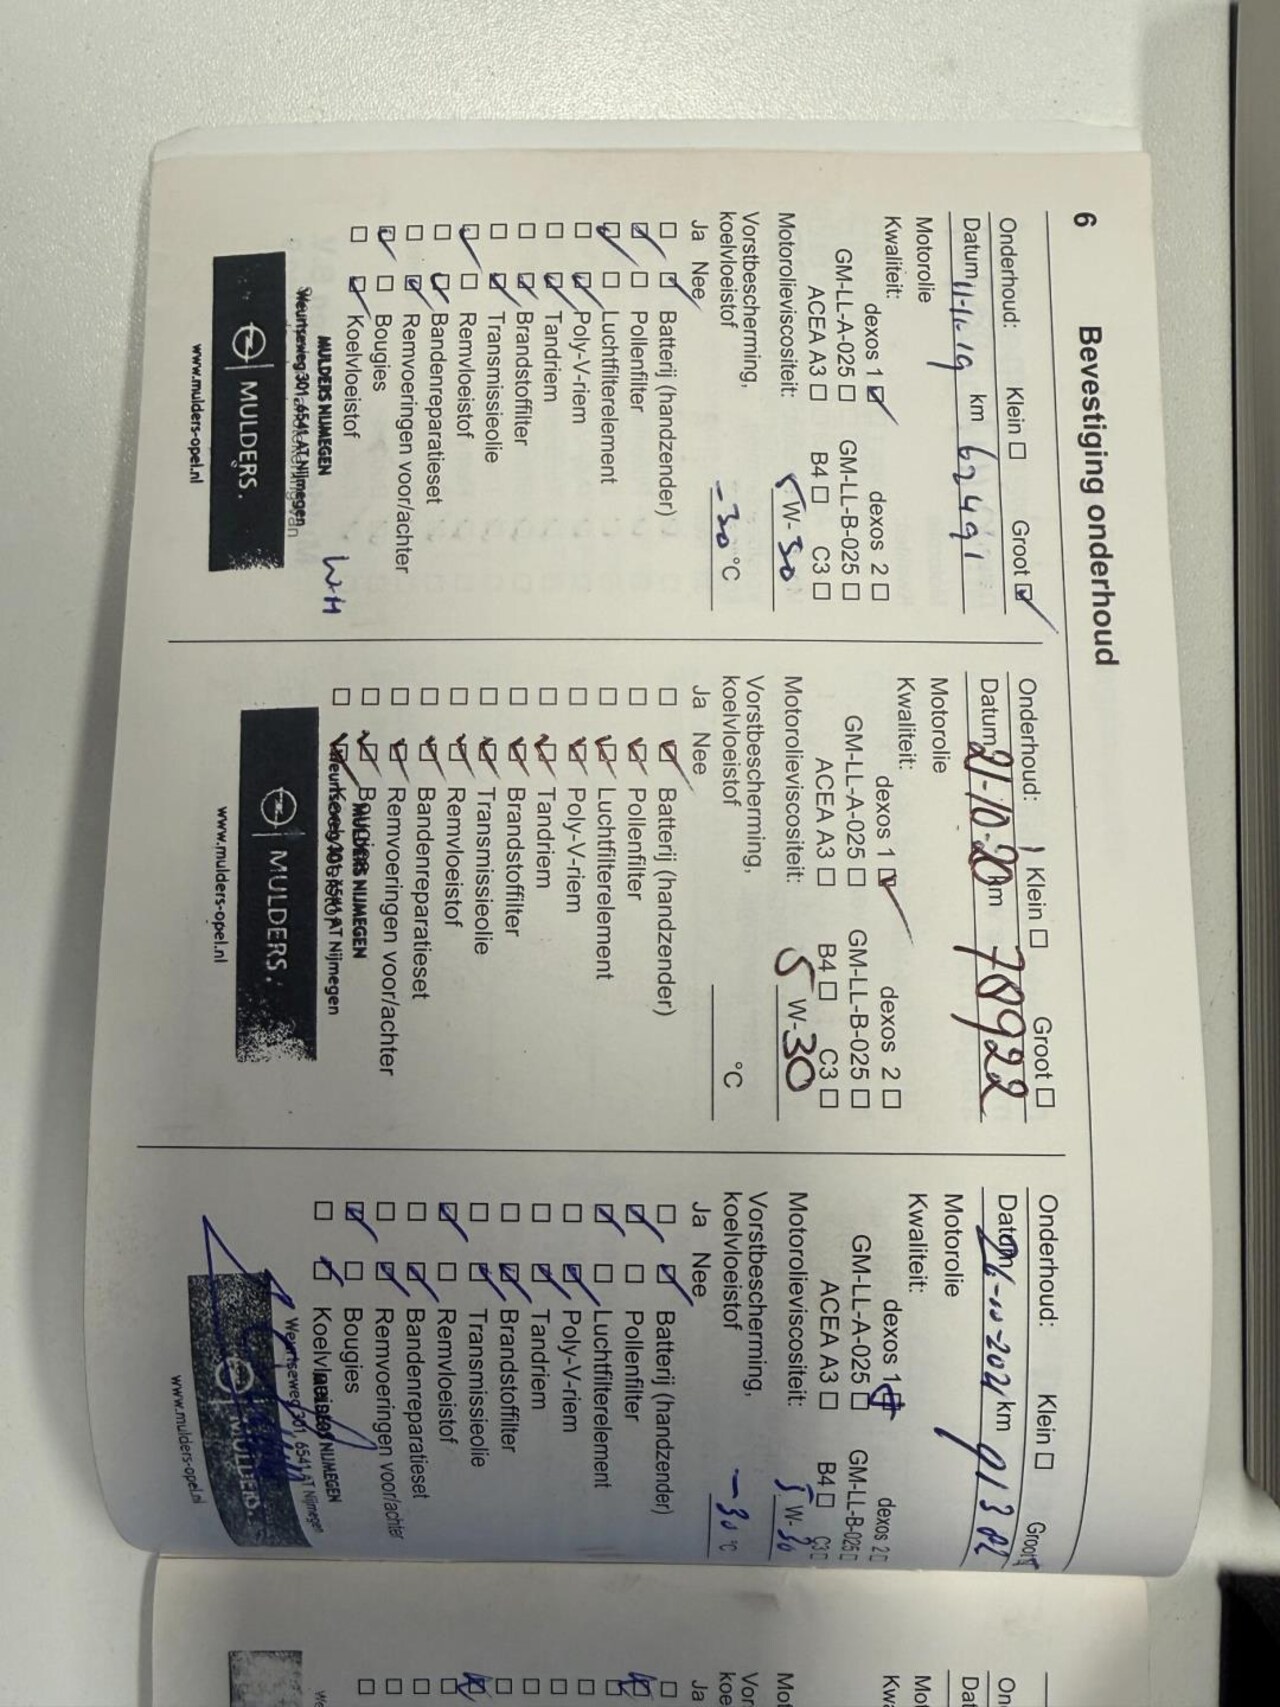 6 Bevestiging onderhoud
Onderhoud: Klein ☐ Groot ☑
Datum 11-11-19 km 62491
Motorolie
Kwaliteit:
dexos 1 ☑ dexos 2 ☐
GM-LL-A-025 ☐ GM-LL-B-025 ☐
ACEA A3 ☐ B4 ☐ C3 ☐
Motorolieviscositeit: 5 W-30
Vorstbescherming,
koelvloeistof -30 °C
Ja Nee
☐ ☑ Batterij (handzender)
☑ ☐ Pollenfilter
☑ ☐ Luchtfilterelement
☐ ☑ Poly-V-riem
☐ ☑ Tandriem
☐ ☑ Brandstoffilter
☐ ☑ Transmissieolie
☑ ☐ Remvloeistof
☐ ☑ Bandenreparatieset
☐ ☑ Remvoeringen voor/achter
☑ ☐ Bougies
☐ ☑ Koelvloeistof
MULDERS NIJMEGEN
Weurtseweg 301, 6541 AT Nijmegen
MULDERS.
www.mulders-opel.nl
Onderhoud: Klein ☐ Groot ☐
Datum 21-10-20 km 78922
Motorolie
Kwaliteit:
dexos 1 ☑ dexos 2 ☐
GM-LL-A-025 ☐ GM-LL-B-025 ☐
ACEA A3 ☐ B4 ☐ C3 ☐
Motorolieviscositeit: 5 W-30
Vorstbescherming,
koelvloeistof °C
Ja Nee
☐ ☑ Batterij (handzender)
☐ ☑ Pollenfilter
☐ ☑ Luchtfilterelement
☐ ☑ Poly-V-riem
☐ ☑ Tandriem
☐ ☑ Brandstoffilter
☐ ☑ Transmissieolie
☐ ☑ Remvloeistof
☐ ☑ Bandenreparatieset
☐ ☑ Remvoeringen voor/achter
☐ ☑ Bougies
☐ ☑ Koelvloeistof
MULDERS NIJMEGEN
Weurtseweg 301, 6541 AT Nijmegen
MULDERS.
www.mulders-opel.nl
Onderhoud: Klein ☐ Groot ☑
Datum km 91382
Motorolie
Kwaliteit:
dexos 1 ☑ dexos 2 ☐
GM-LL-A-025 ☐ GM-LL-B-025 ☐
ACEA A3 ☐ B4 ☐ C3 ☐
Motorolieviscositeit: 5 W-30
Vorstbescherming,
koelvloeistof -30 °C
Ja Nee
☐ ☑ Batterij (handzender)
☑ ☐ Pollenfilter
☑ ☐ Luchtfilterelement
☐ ☑ Poly-V-riem
☐ ☑ Tandriem
☐ ☑ Brandstoffilter
☐ ☑ Transmissieolie
☑ ☐ Remvloeistof
☐ ☑ Bandenreparatieset
☐ ☑ Remvoeringen voor/achter
☑ ☐ Bougies
☐ ☑ Koelvloeistof
NIJMEGEN
Weurtseweg 301, 6541 AT Nijmegen
MULDERS.
www.mulders-opel.nl